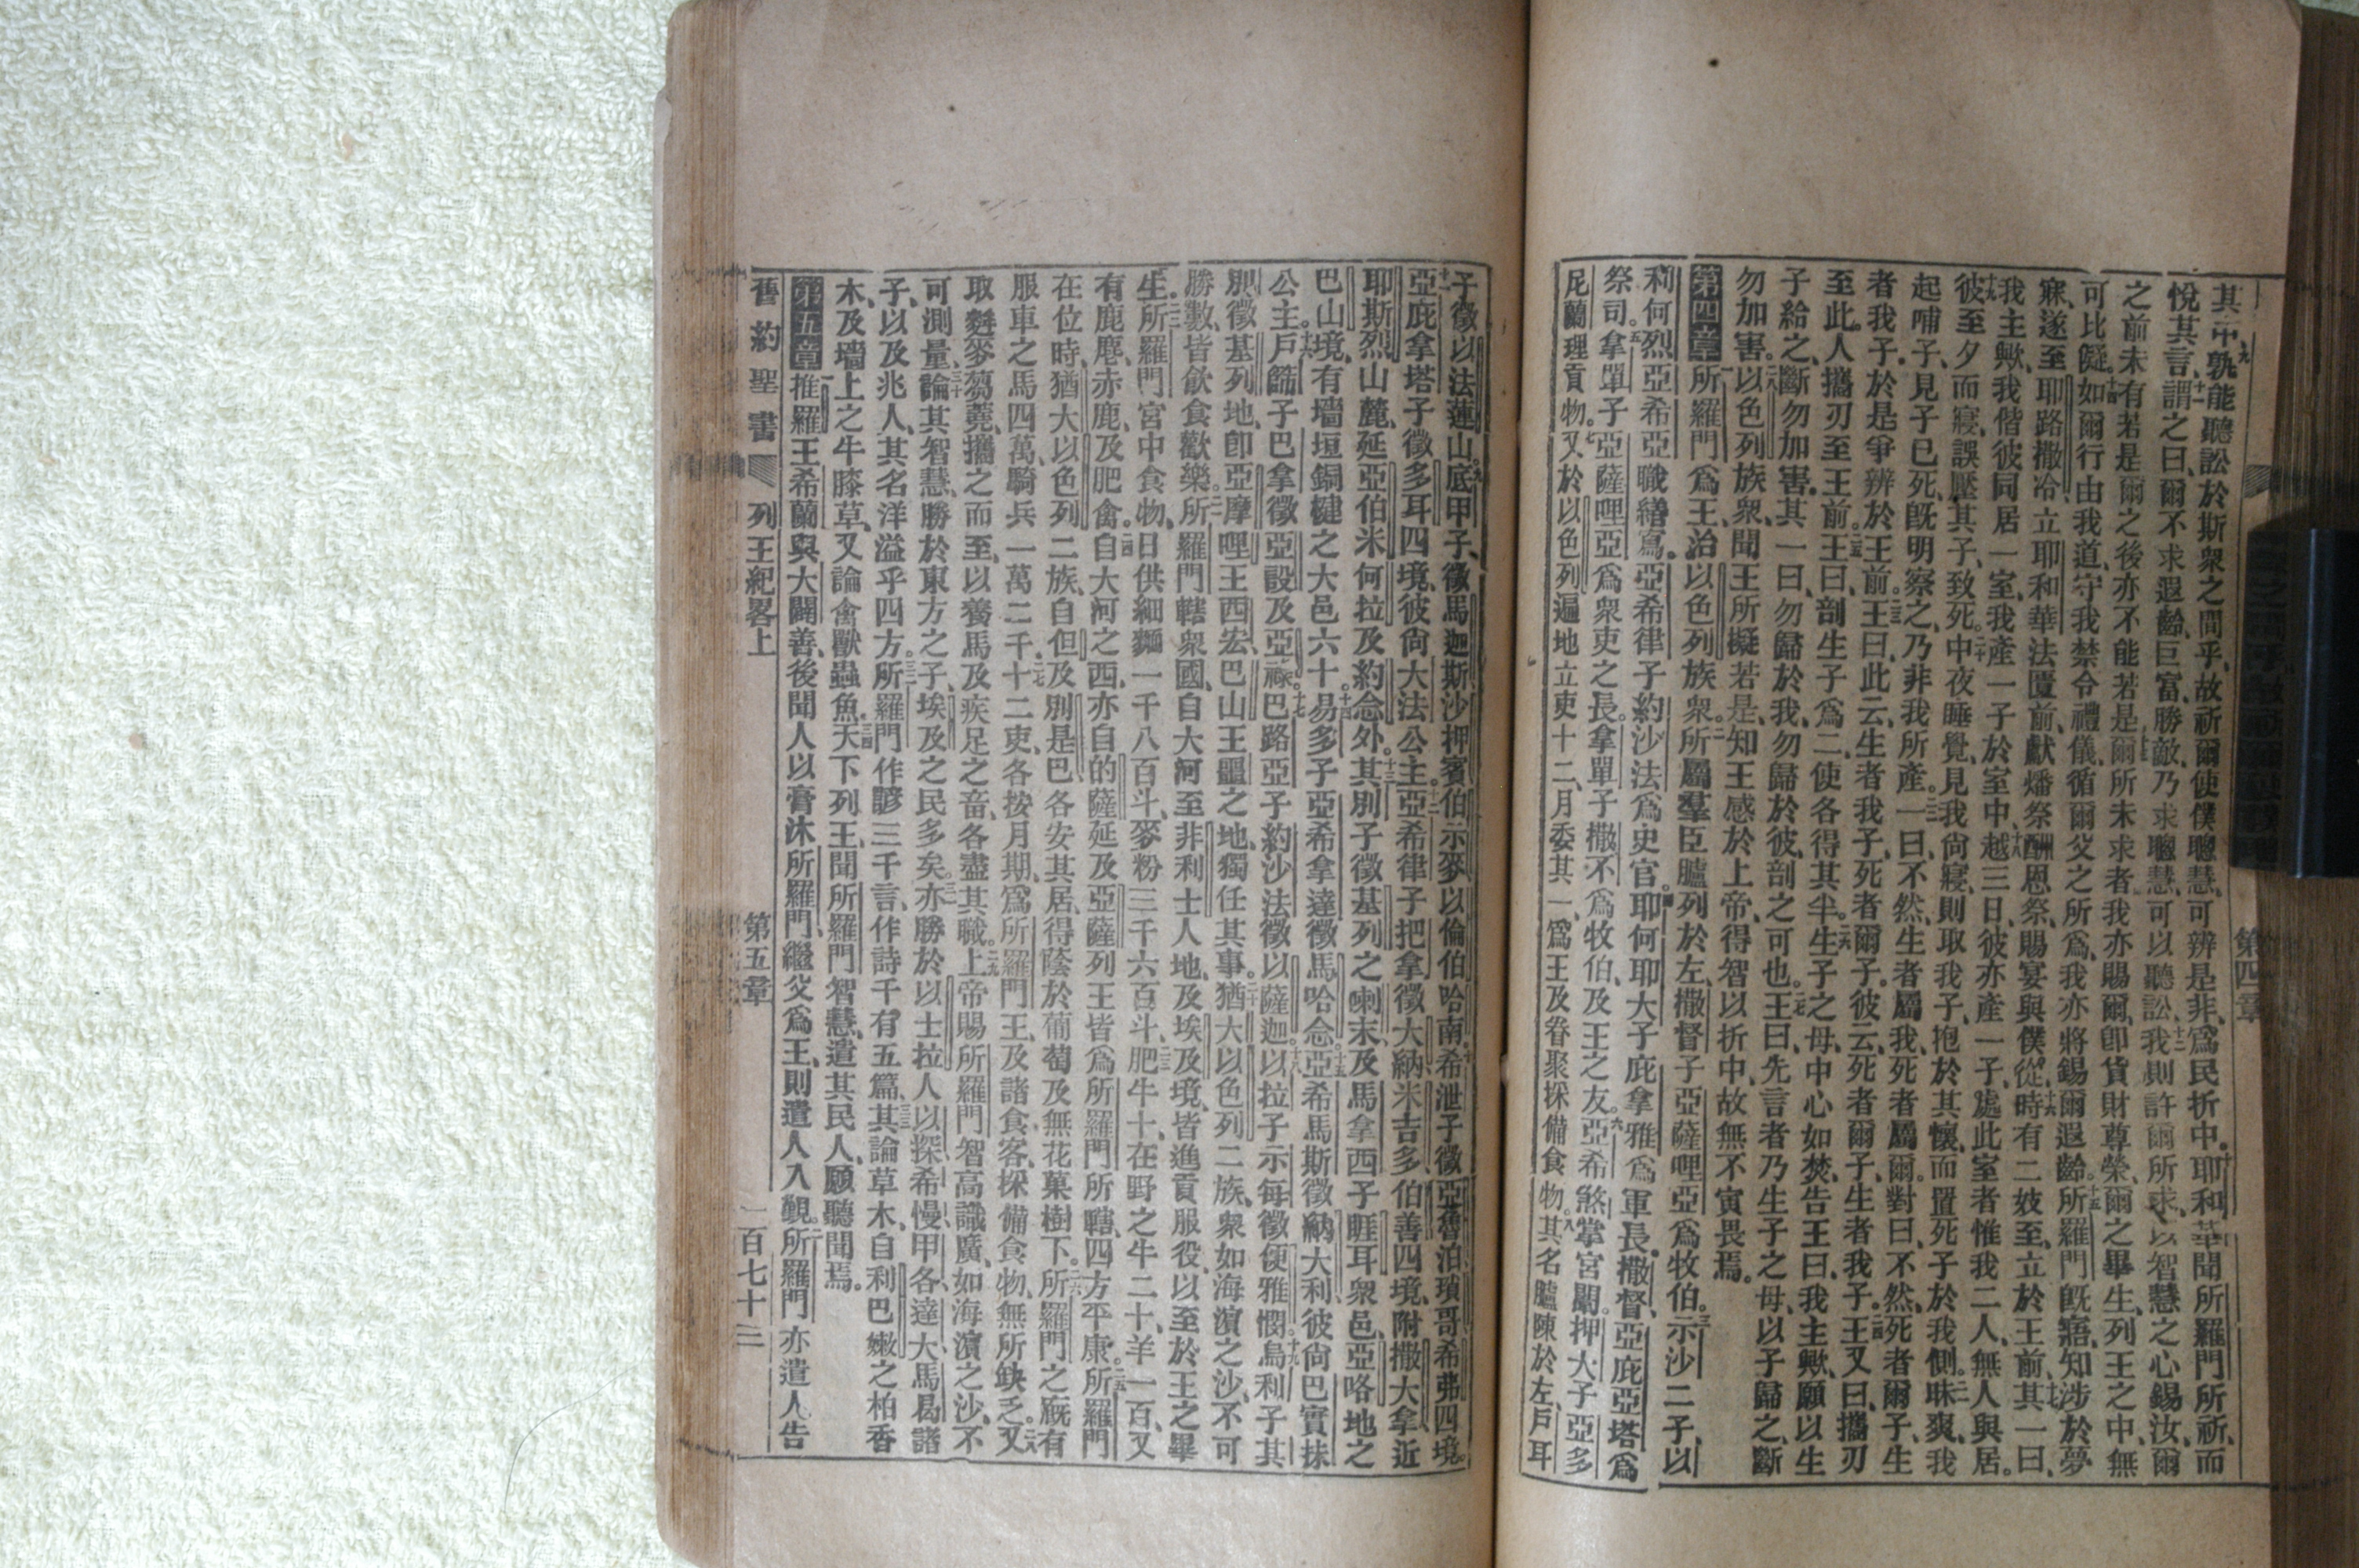 其中孰能聽訟於斯衆之間乎、故祈爾使僕聰慧、可辨是非、爲民折中。耶和華聞所羅門所祈、而
悅其言、謂之曰、爾不求遐齡、巨富、勝敵、乃求聰慧、可以聽訟、我則許爾所求、以智慧之心錫汝、爾
之前未有若是、爾之後亦不能若是、爾所未求者、我亦賜爾、卽貨財尊榮、爾之畢生、列王之中、無
可比儗、如爾行由我道、守我禁令禮儀、循爾父之所爲、我亦將錫爾遐齡。所羅門旣寤、知涉於夢
寐、遂至耶路撒冷、立耶和華法匱前、獻燔祭、酬恩祭、賜宴與僕。從時有二妓至、立於王前、其一曰、
我主歟、我偕彼同居一室、我產一子於室中、越三日、彼亦產一子、處此室者、惟我二人、無人與居。
彼至夕而寢、誤壓其子、致死。中夜睡覺、見我尙寢、則取我子、抱於其懷、而置死子於我側。昧爽、我
起哺子、見子已死、旣明察之、乃非我所產。一曰、不然、生者屬我、死者屬爾。對曰、不然、死者爾子、生
者我子、於是爭辨於王前。王曰、此云、生者我子、死者爾子。彼云、死者爾子、生者我子。王又曰、攜刃
至此、人攜刃至王前。王曰、剖生子爲二、使各得其半。生子之母、中心如焚、告王曰、我主歟、願以生
子給之、斷勿加害。其一曰、勿歸於我、勿歸於彼、剖之可也。王曰、先言者乃生子之母、以子歸之、斷
勿加害。以色列族衆、聞王所擬若是、知王感於上帝、得智以折中、故無不寅畏焉。
第四章 所羅門爲王、治以色列族衆。所屬羣臣臚列於左、撒督子亞薩哩亞爲牧伯。示沙二子、以
利何烈、亞希亞職繕寫。亞希律子約沙法爲史官。耶何耶大子庇拿雅爲軍長。撒督、亞庇亞塔爲
祭司。拿單子亞薩哩亞爲衆吏之長。拿單子撒不爲牧伯、及王之友。亞希煞掌宮闈。押大子亞多
尼蘭理貢物。又於以色列遍地立吏十二、月委其一、爲王及眷聚採備食物。其名臚陳於左、戶耳
子徵以法蓮山。底甲子、徵馬迦斯、沙押賓、伯示麥、以倫伯哈南。希泄子徵亞魯泊、瑣哥、希弗四境。
亞庇拿塔子徵多耳四境、彼尙大法公主。亞希律子把拿徵大納、米吉多、伯善四境、附撒大拿、近
耶斯烈山麓、延亞伯米何拉、及約念外。其別子徵基列之喇末、及馬拿西子睚耳衆邑、亞咯地之
巴山境、有墻垣銅楗之大邑六十。易多子亞希拿達徵馬哈念。亞希馬斯徵納大利、彼尙巴實抹
公主。戶篩子巴拿徵亞設及亞祿。巴路亞子約沙法徵以薩迦。以拉子示每徵便雅憫。烏利子其
別徵基列地、卽亞摩哩王西宏、巴山王噩之地、獨任其事。猶大以色列二族、衆如海濱之沙、不可
勝數、皆飲食歡樂。所羅門轄衆國、自大河至非利士人地、及埃及境、皆進貢服役、以至於王之畢
生。所羅門宮中食物、日供細麵一千八百斗、麥粉三千六百斗、肥牛十、在野之牛二十、羊一百、又
有鹿、麀、赤鹿、及肥禽。自大河之西、亦自的薩延及亞薩、列王皆爲所羅門所轄、四方平康。所羅門
在位時、猶大以色列二族、自但及別是巴、各安其居、得蔭於葡萄及無花菓樹下。所羅門之廐、有
服車之馬四萬、騎兵一萬二千。十二吏、各按月期、爲所羅門王及諸食客、採備食物、無所缺乏。又
取麰麥芻蕘、攜之而至、以養馬及疾足之畜、各盡其職。上帝賜所羅門智高識廣、如海濱之沙、不
可測量、論其智慧、勝於東方之子、埃及之民多矣。亦勝於以士拉人以探、希慢、甲各、達大、馬曷諸
子、以及兆人、其名洋溢乎四方。所羅門作諺三千言、作詩千有五篇、其論草木、自利巴嫩之柏香
木、及墻上之牛膝草、又論禽獸蟲魚。天下列王、聞所羅門智慧、遣其民人、願聽聞焉。
第五章 推羅王希蘭與大闢善、後聞人以膏沐所羅門、繼父爲王、則遣人入覲。所羅門亦遣人告
舊約聖書 列王紀畧上 第五章 二百七十三
第四章